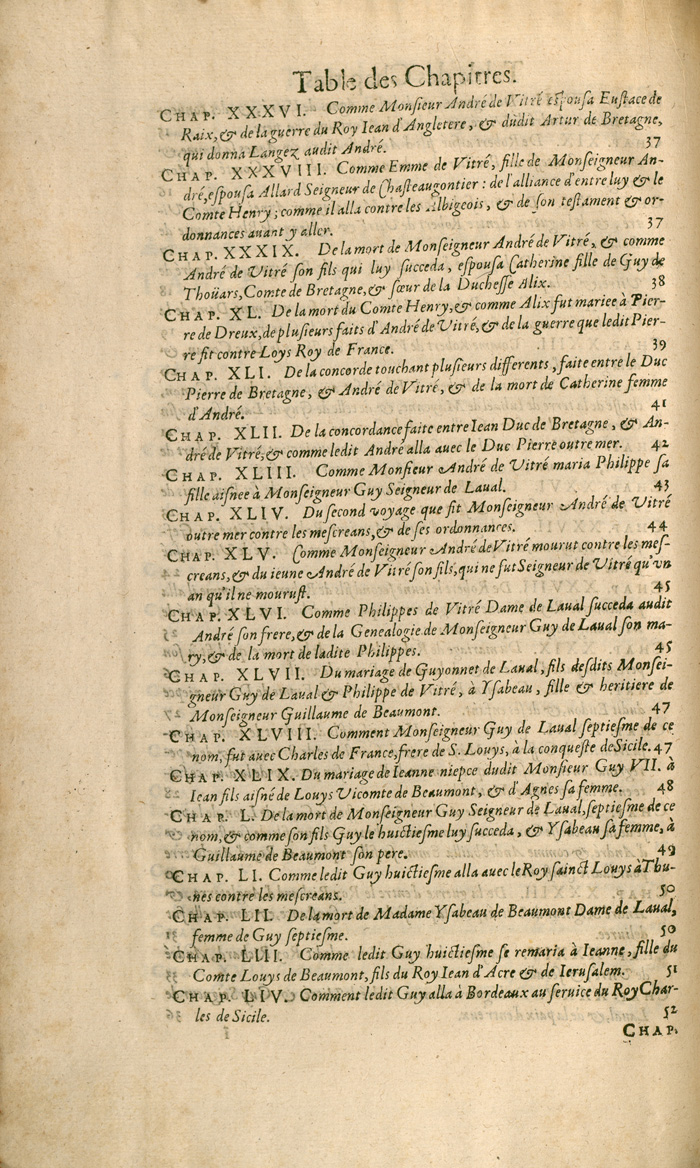 Table des Chapitres.
CHAP. XXXVI. Comme Monſieur André de Vitré eſpouſa Euſtace de
Raix, & de la guerre du Roy Iean d'Angletere, & dudit Artur de Bretagne,
qui donna Langez audit André. 37
CHAP. XXXVIII. Comme Emme de Vitré, fille de Monſeigneur An-
dré, eſpouſa Allard Seigneur de Chaſteaugontier : de l'alliance d'entre luy & le
Comte Henry ; comme il alla contre les Albigeois, & de ſon teſtament & or-
donnances auant y aller. 37
CHAP. XXXIX. De la mort de Monſeigneur André de Vitré, & comme
André de Vitré ſon fils qui luy ſucceda, eſpouſa Catherine fille de Guy de
Thoüars, Comte de Bretagne, & ſœur de la Ducheſſe Alix. 38
CHAP. XL. De la mort du Comte Henry, & comme Alix fut mariee à Pier-
re de Dreux, de pluſieurs faits d'André de Vitré, & de la guerre que ledit Pier-
re fit contre Loys Roy de France. 39
CHAP. XLI. De la concorde touchant pluſieurs differents, faite entre le Duc
Pierre de Bretagne, & André de Vitré, & de la mort de Catherine femme
d'André. 41
CHAP. XLII. De la concordance faite entre Iean Duc de Bretagne, & An-
dré de Vitré, & comme ledit André alla auec le Duc Pierre outre mer. 42
CHAP. XLIII. Comme Monſieur André de Vitré maria Philippe ſa
fille aiſnee à Monſeigneur Guy Seigneur de Laual. 43
CHAP. XLIV. Du ſecond voyage que fit Monſeigneur André de Vitré
outre mer contre les meſcreans, & de ſes ordonnances. 44
CHAP. XLV. Comme Monſeigneur André de Vitré mourut contre les meſ-
creans, & du ieune André de Vitré ſon fils, qui ne fut Seigneur de Vitré qu'vn
an qu'il ne mouruſt. 45
CHAP. XLVI. Comme Philippes de Vitré Dame de Laual ſucceda audit
André ſon frere, & de la Genealogie de Monſeigneur Guy de Laual ſon ma-
ry, & de la mort de ladite Philippes. 45
CHAP. XLVII. Du mariage de Guyonnet de Laual, fils deſdits Monſei-
gneur Guy de Laual & Philippe de Vitré, à Yſabeau, fille & heritiere de
Monſeigneur Guillaume de Beaumont. 47
CHAP. XLVIII. Comment Monſeigneur Guy de Laual ſeptieſme de ce
nom, fut auec Charles de France, frere de S. Louys, à la conqueſte de Sicile. 47
CHAP. XLIX. Du mariage de Ieanne niepce dudit Monſieur Guy VII. à
Iean fils aiſné de Louys Vicomte de Beaumont, & d'Agnes ſa femme. 48
CHAP. L. De la mort de Monſeigneur Guy Seigneur de Laual, ſeptieſme de ce
nom, & comme ſon fils Guy le huictieſme luy ſucceda, & Yſabeau ſa femme, à
Guillaume de Beaumont ſon pere. 49
CHAP. LI. Comme ledit Guy huictieſme alla auec le Roy ſainct Louys à Thu-
nes contre les meſcreans. 50
CHAP. LII. De la mort de Madame Yſabeau de Beaumont Dame de Laual,
femme de Guy ſeptieſme. 50
CHAP. LIII. Comme ledit Guy huictieſme ſe remaria à Ieanne, fille du
Comte Louys de Beaumont, fils du Roy Iean d'Acre & de Ieruſalem. 51
CHAP. LIV. Comment ledit Guy alla à Bordeaux au ſeruice du Roy Char-
les de Sicile. 52
CHAP.